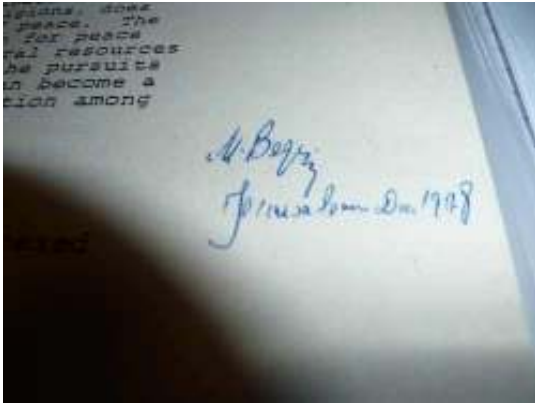 igions, does
peace. The
for peace
ral resources
he pursuits
an become a
tion among
M. Begin
Jerusalem Dec. 1978